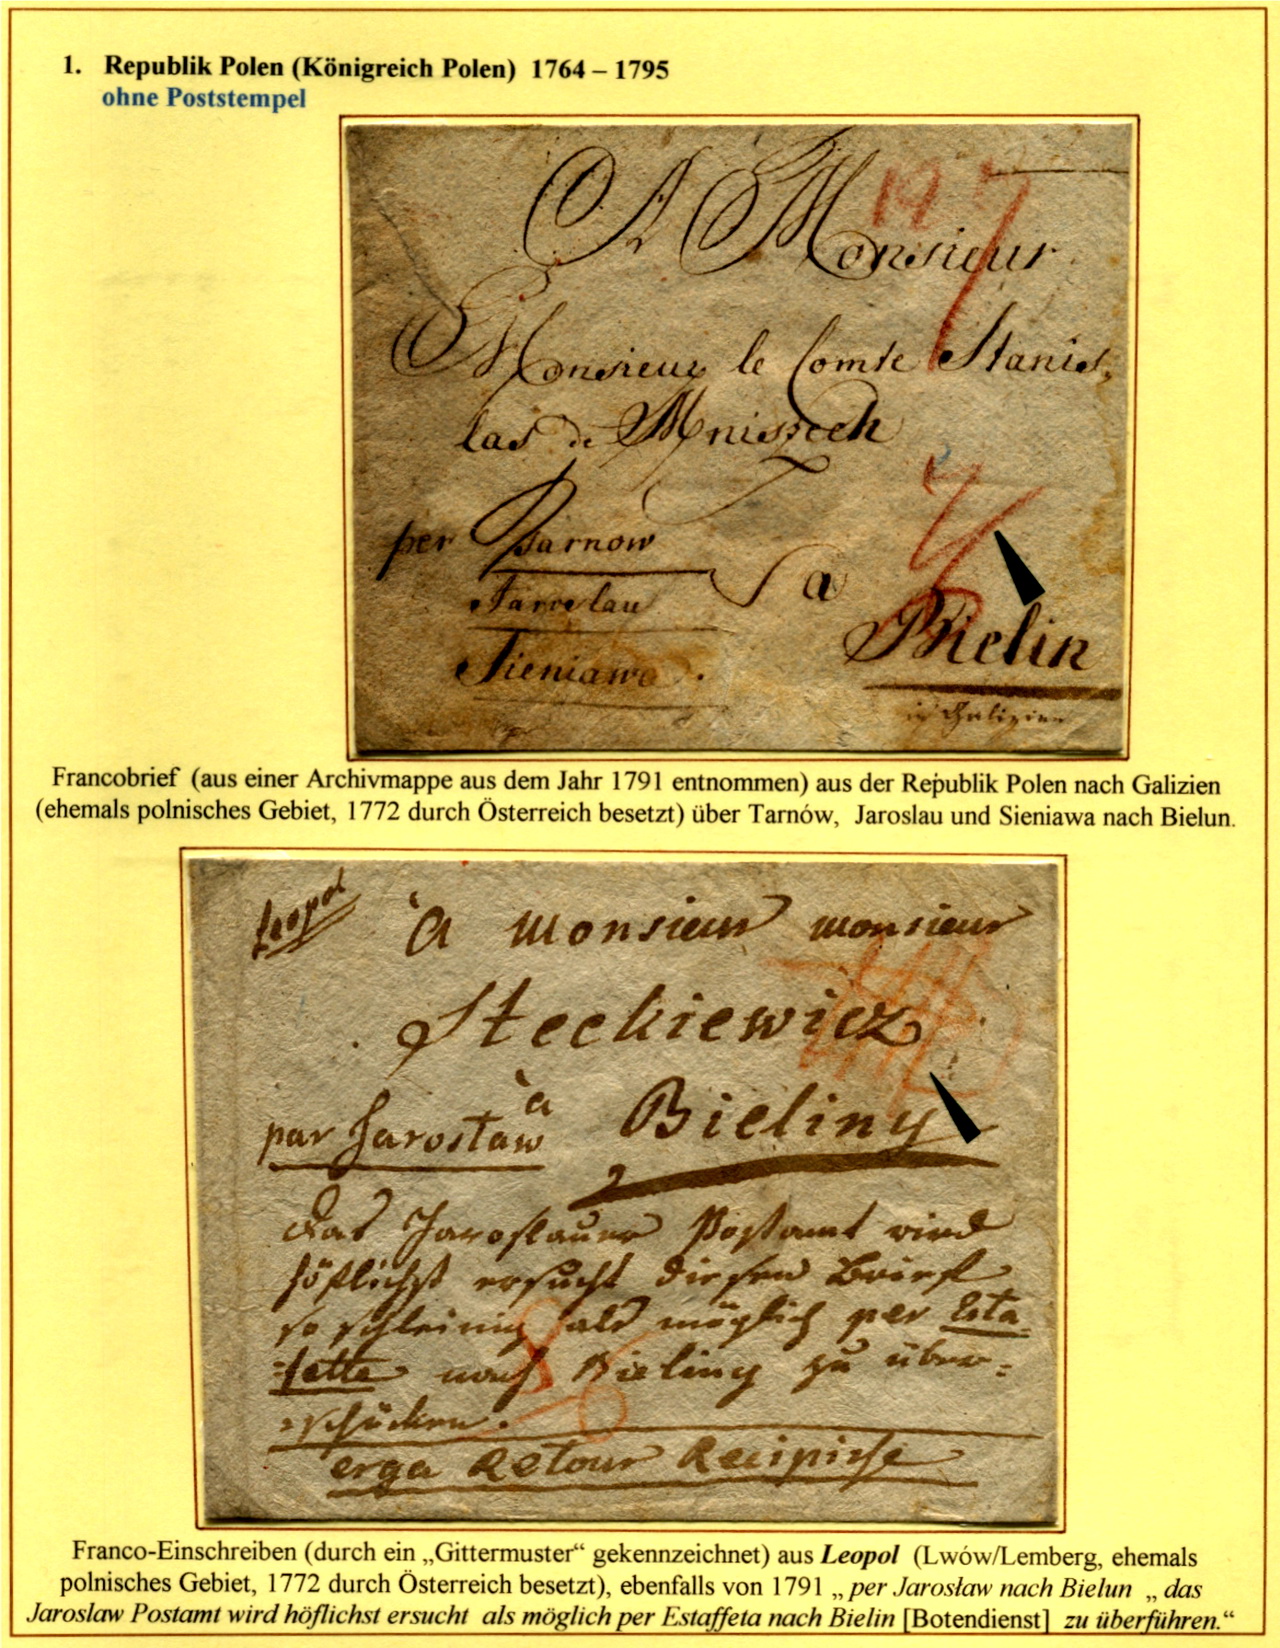 1. Republik Polen (Königreich Polen) 1764 – 1795
ohne Poststempel
A Monsieur
19 7
Monsieur le Comte Stanis,
las de Mniszech
per Tarnow
Jaroslau
a
Sieniawa.
Bielin
in Galizien
Francobrief (aus einer Archivmappe aus dem Jahr 1791 entnommen) aus der Republik Polen nach Galizien
(ehemals polnisches Gebiet, 1772 durch Österreich besetzt) über Tarnów, Jaroslau und Sieniawa nach Bielun.
Leopol
à monsieur monsieur
Steckiewicz
à Bieliny
par Jarosław
das Jaroslauer Postamt wird
höflichst ersucht diesen Brief
so schleinig als möglich per Esta-
fette nach Bieliny zu über-
schücken.
erga Retour Recipisse
Franco-Einschreiben (durch ein „Gittermuster“ gekennzeichnet) aus Leopol (Lwów/Lemberg, ehemals
polnisches Gebiet, 1772 durch Österreich besetzt), ebenfalls von 1791 „ per Jarosław nach Bielun „ das
Jaroslaw Postamt wird höflichst ersucht als möglich per Estaffeta nach Bielin [Botendienst] zu überführen.“